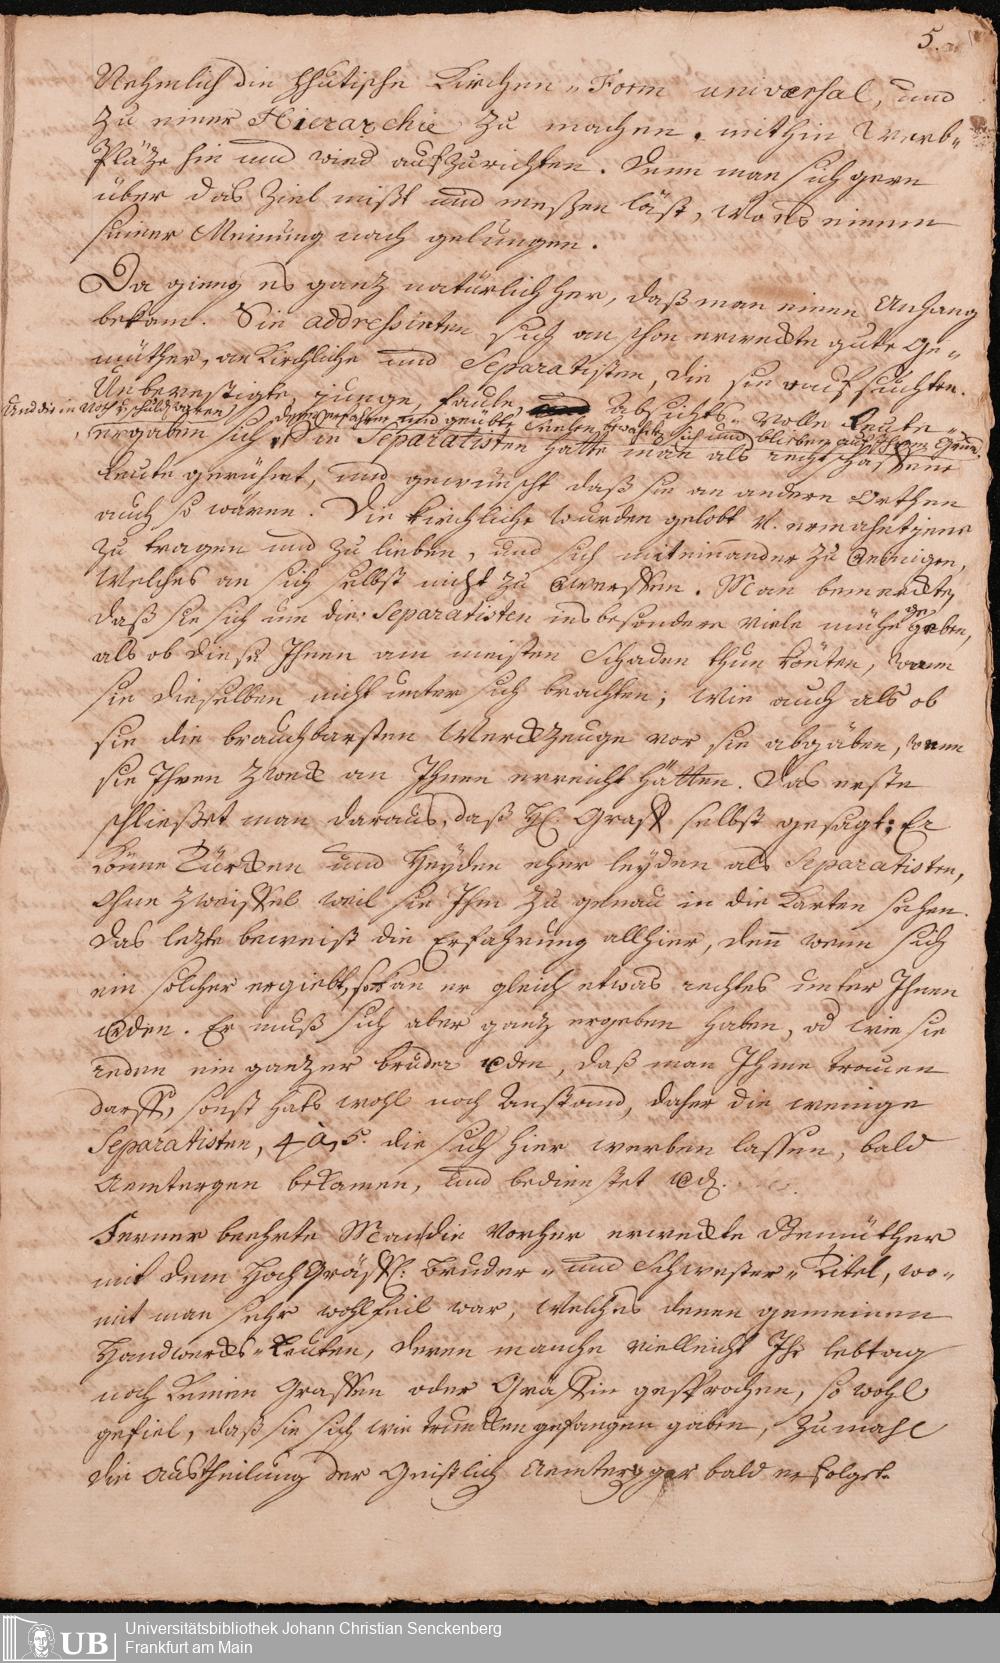 5.
Nehmlich die Hhutische Kirchen-Form universal, und
zu einer Hierarchie zu machen, mithin Werb-
Plätze hin und wied aufzurichten. Denn man sich gern
über das Ziel mißt und meßen läst, wo es einem
seiner Meinung nach gelungen.
Da gieng es ganz natürlich her, daß man einen Anhang
bekam. Sie addressirten sich an schon erweckte gute Ge-
müther, an Kirchliche und Separatisten, die sie aufsuchten.
Unbevestigte, junge, faule, absichts-volle Leute
Und die in Noth u. schuld waren,
ergaben sich, Die erfahrene und geübte Seelen, wehrten sich und blieben auf ihrem Grund.
Die Separatisten hatte man als rechtschaffene
Leute gerühmt, und gewünscht daß sie an andern Orthen
auch so wären. Die Kirchliche wurden gelobt u. ermahnt jene
zu tragen und zu lieben, und sich mit einander zu vereinigen,
Welches an sich selbst nicht zu verwerffen. Man bemerckte,
daß sie sich um die Separatisten insbesondere viele mühe geben,
als ob diese Ihnen am meisten Schaden thun könten, wann
sie dieselben nicht unter sich brachten; Wie auch als ob
sie die brauchbarsten Werckzeuge vor sie abgäben, wenn
sie Ihren Zweck an Ihnen erreicht hätten. Das erste
schließet man daraus, daß H. Graff selbst gesagt: Er
könne Türcken und Heyden eher leyden als Separatisten,
Ohne Zweiffel weil sie Ihm zu genau in die Karten sehen.
Das letzte beweist die Erfahrung allhier, denn wenn sich
ein solcher ergiebt, so kan er gleich etwas rechtes unter Ihnen
werden. Er muß sich aber ganz ergeben haben, od wie sie
reden ein ganzer bruder werden, daß man Ihme trauen
darff, sonst hats wohl noch Anstand, daher die wenige
Separatisten, 4 à 5. die sich hier werben lassen, bald
Aemtergen bekamen, und bedienstet wurd.
Ferner beehrte Man die vorher erweckte Gemüther
mit dem HochGräffl. Bruder- und Schwester-Titel, wo-
mit man sehr wohlfeil war, Welches denen gemeinen
Handwercks-Leuten, deren manche vielleicht Ihr lebtag
noch keinen Graffen oder Gräffin gesprochen, so wohl
gefiel, daß sie sich wie truncken gefangen gaben, zumahl
die Austheilung der Geistlich Aemtergen gar bald erfolget.
UB
Universitätsbibliothek Johann Christian Senckenberg
Frankfurt am Main